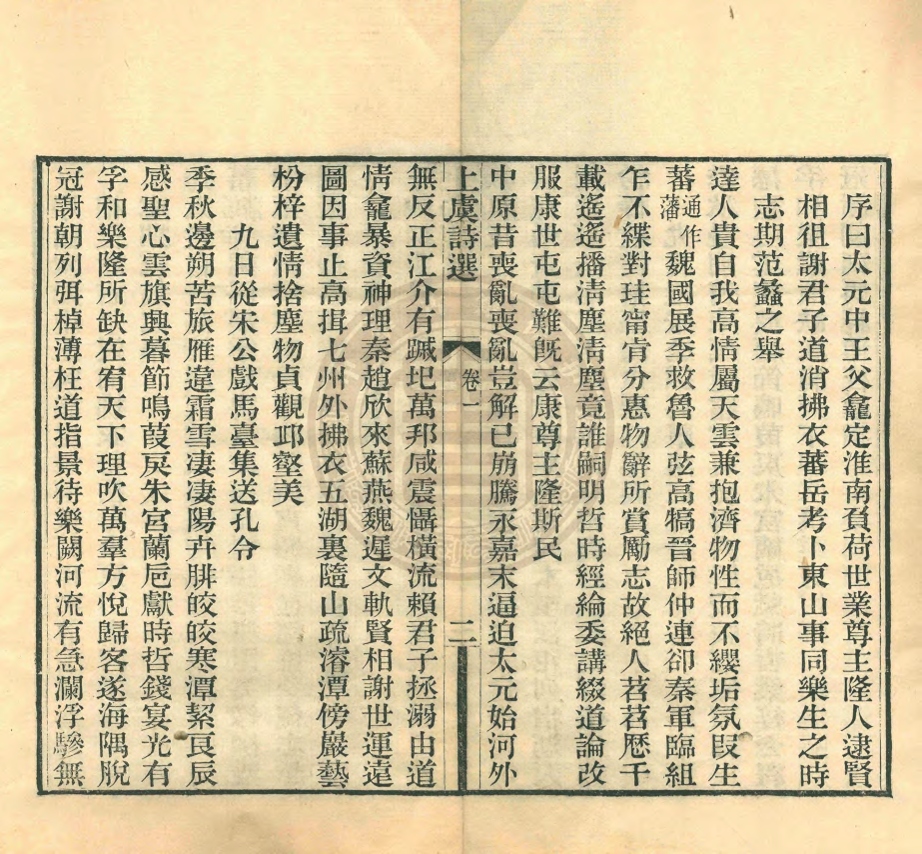 序曰太元中王父龕定淮南負荷世業尊主隆人逮賢
相徂謝君子道消拂衣蕃岳考卜東山事同樂生之時
志期范蠡之舉
達人貴自我高情屬天雲兼抱濟物性而不纓垢氛段生
蕃通作藩魏國展季救魯人弦高犒晉師仲連卻秦軍臨組
乍不緤對珪甯肯分惠物辭所賞勵志故絕人苕苕歷千
載遙遙播淸塵淸塵竟誰嗣明哲時經綸委講綴道論改
服康世屯屯難旣云康尊主隆斯民
中原昔喪亂喪亂豈解已崩騰永嘉末逼迫太元始河外
上虞詩選 卷一 二
無反正江介有蹴圯萬邦咸震懾橫流賴君子拯溺由道
情龕暴資神理秦趙欣來蘇燕魏遲文軌賢相謝世運遠
圖因事止高揖七州外拂衣五湖裏隨山疏濬潭傍巖藝
枌梓遺情捨塵物貞觀邱壑美
九日從宋公戲馬臺集送孔令
季秋邊朔苦旅雁違霜雪凄凄陽卉腓皎皎寒潭絜良辰
感聖心雲旗興暮節鳴葭戾朱宮蘭卮獻時哲餞宴光有
孚和樂隆所缺在宥天下理吹萬羣方悅歸客遂海隅脫
冠謝朝列弭棹薄枉道指景待樂闋河流有急瀾浮驂無